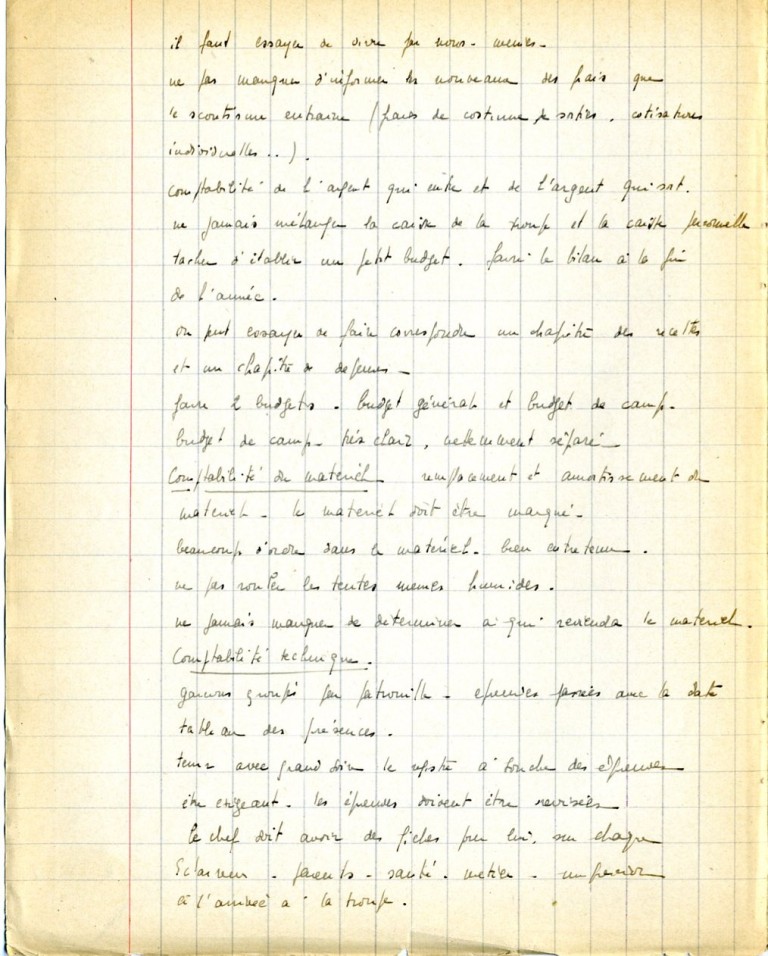 il faut essayer de vivre par nous-mêmes -
ne pas manquer d'informer les nouveaux des frais que
le scoutisme entraine (frais de costume, de sorties, cotisations
individuelles..).
comptabilité de l'argent qui entre et de l'argent qui sort.
ne jamais mélanger la caisse de la troupe et la caisse personnelle
tacher d'établir un petit budget. faire le bilan à la fin
de l'année.
on peut essayer de faire correspondre un chapitre des recettes
et un chapitre de dépenses -
faire 2 budgets. budget général et budget de camp.
budget de camp - très clair, nettement séparé -
Comptabilité du matériel remplacement et amortissement du
matériel - le matériel doit être marqué -
beaucoup d'ordre dans le matériel - bien entretenu.
ne pas rouler les tentes memes humides.
ne jamais manquer de déterminer à qui reviendra le matériel.
Comptabilité technique.
garcons groupés par patrouille - épreuves passées avec la date
tableau des présences.
tenir avec grand soin le registre à souche des épreuves
être exigeant - les épreuves doivent être revisées
le chef doit avoir des fiches pour lui, sur chaque
Eclaireur - parents - santé - metier -
à l'arrivée à la troupe.